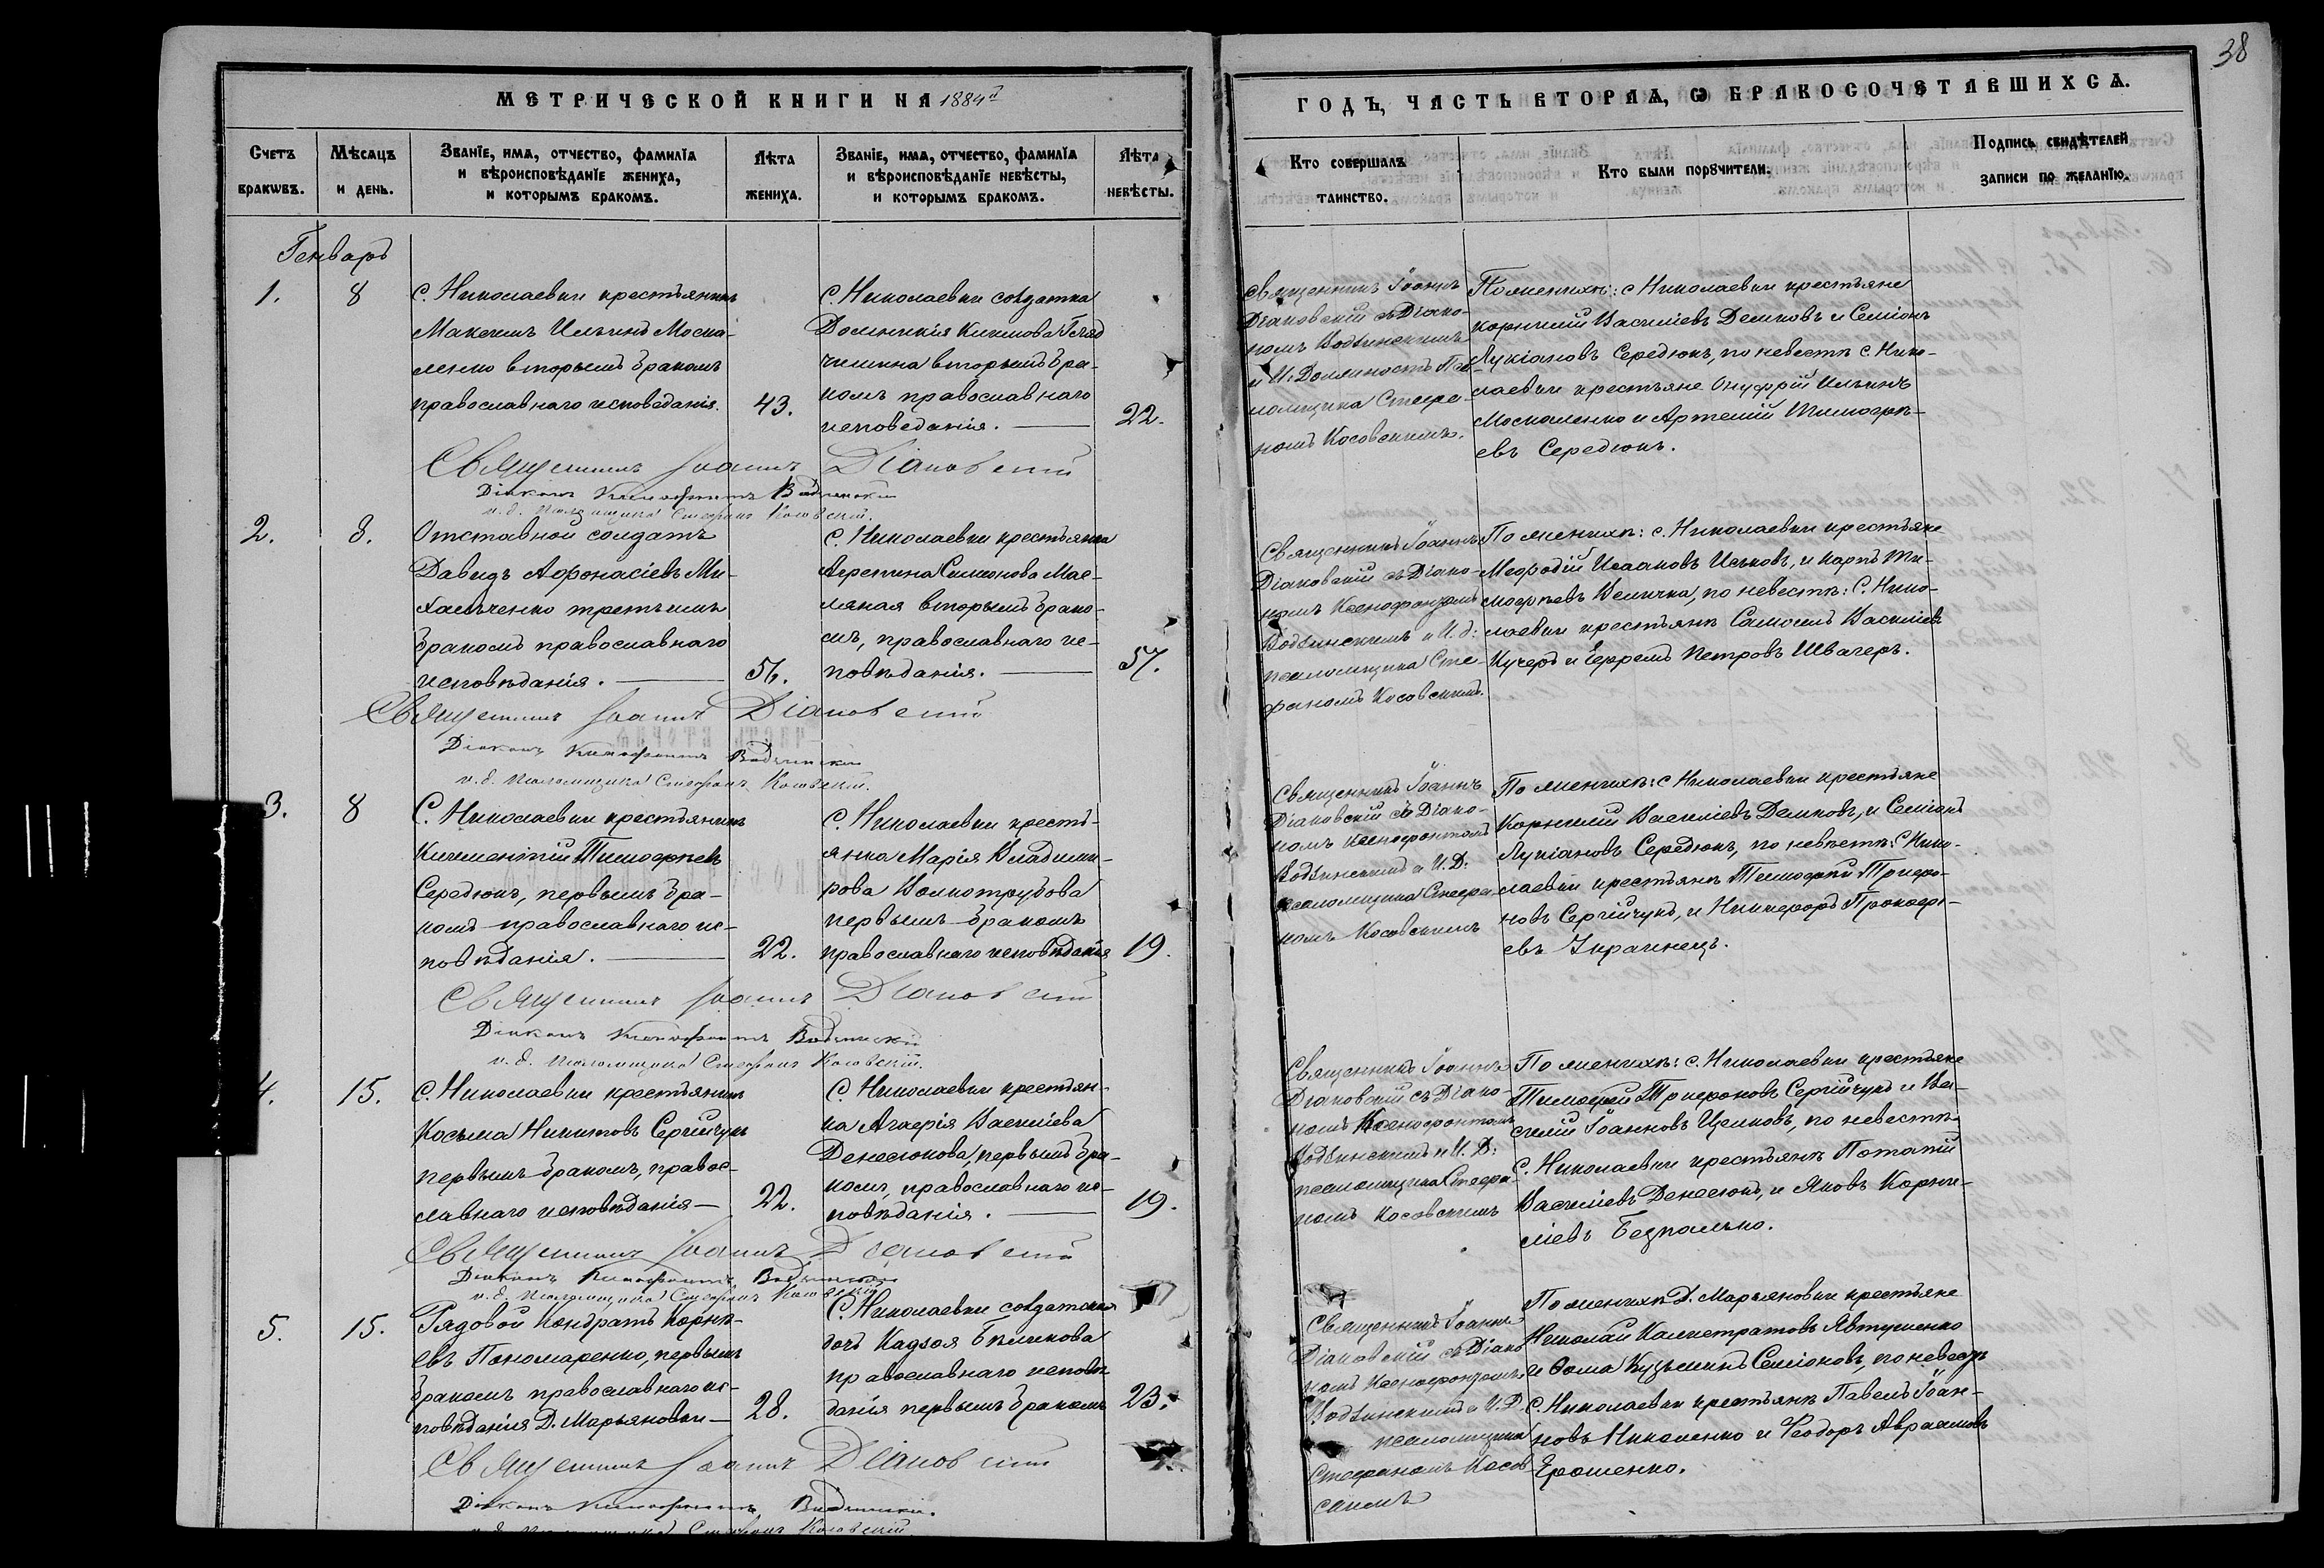 38
МЕТРИЧЕСКОЙ КНИГИ НА 1884й
ГОДЪ, ЧАСТЬ ВТОРАЯ, Ѡ БРАКОСОЧЕТАВШИХСѦ.
Счетъ
бракѡвъ.
Мѣсяцъ
и день.
Званїе, имя, отчество, фамилїя
и вѣроисповѣданїе жениха,
и которымъ бракомъ.
Лѣта
жениха.
Званїе, имя, отчество, фамилїя
и вѣроисповѣданїе невѣсты,
и которымъ бракомъ.
Лѣта
невѣсты.
Кто совершалъ
таинство.
Кто были порꙋчители.
Подпись свидѣтелей
записи по желанїю.
Генварь
1.
8
С. Николаевки крестьянинъ
Максимъ Ильинъ Моска-
ленко вторымъ бракомъ
православнаго исповеданія.
43.
С. Николаевки солдатка
Домникія Климова
вторымъ бра-
комъ православнаго
исповеданія.
22.
Священникъ Іоаннъ
Діаковскій съ Діако-
номъ Водзинскимъ
и И. Должность Пса-
ломщика Стефа-
номъ Косовскимъ.
По женихѣ: с Николаевки крестьяне
Корнилій Василіевъ Демковъ и Семіонъ
Лукіановъ Середюкъ, по невестѣ с. Нико-
лаевки крестьяне Онуфрій Ильинъ
Москаленко и Артемій Тимофѣ-
евъ Середюкъ.
Священникъ Іоаннъ Діаковскій
Діаконъ Ксенофонтъ Водзинскій
и. д. Псаломщика Стефанъ Косовскій.
2.
8.
Отставной солдатъ
Давидъ Афонасіевъ Ми-
хальченко третьимъ
бракомъ православнаго
исповѣданія.
56.
С. Николаевки крестьянка
Симеонова Мас-
ляная вторымъ брако-
мъ, православнаго ис-
повѣданія.
57.
Священникъ Іоаннъ
Діаковскій съ Діако-
номъ Ксенофонтомъ
Водзинскимъ и И. д:
псаломщика Сте-
фаномъ Косовскимъ.
По женихѣ: с. Николаевки крестьяне
Мефодій Исааковъ Иськовъ, и Карпъ Ти-
мофѣевъ Величка, по невестѣ: С. Нико-
лаевки крестьянѣ Самоилъ Василіевъ
Кучеръ и Ефремъ Петровъ Швачеръ.
Священникъ Іоаннъ Діаковскій
Діаконъ Ксенофонтъ Водзинскій
и. д. Псаломщика Стефанъ Косовскій.
3.
8
С. Николаевки крестьянинъ
Климентій Тимофѣевъ
Середюкъ, первымъ бра-
комъ православнаго ис-
повѣданія.
22.
С. Николаевки кресть-
янка Марія Владими-
рова Волкотрубова
первымъ бракомъ
православнаго исповѣданія
19.
Священникъ Іоаннъ
Діаковскій съ Діако-
номъ Ксенофонтомъ
Водзинскимъ и И. Д:
псаломщика Стефа-
номъ Косовскимъ
По женихѣ: с Николаевки крестьяне
Корнилій Василіевъ Демковъ, и Семіонъ
Лукіановъ Середюкъ, по невѣстѣ: С Нико-
лаевки крестьянѣ Тимофѣй Трифо-
новъ Сергійчукъ, и Никифоръ Прокофі-
евъ Украинецъ.
Священникъ Іоаннъ Діаковскій
Діаконъ Ксенофонтъ Водзинскій
и. д. Псаломщика Стефанъ Косовскій.
4.
15.
С. Николаевки крестьянинъ
Косьма Никитовъ Сергійчукъ
первымъ бракомъ, правос-
лавнаго исповѣданія
22.
С. Николаевки крестьян-
ка Агафія Василіева
Денесюкова, первымъ бра-
комъ, православнаго ис-
повѣданія.
19.
Священникъ Іоаннъ
Діаковскій съ Діако-
номъ Ксенофонтомъ
Водзинскимъ и И. Д:
псаломщика Стефа-
номъ Косовскимъ
По женихѣ: с. Николаевки крестьяне
Тимофей Трифоновъ Сергійчукъ и Ва-
силій Іоанновъ Цемковъ, по невестѣ
С. Николаевки крестьянѣ Потапій
Василіевъ Денесюкъ, и Яковъ Корни-
ліевъ Безпалько.
Священникъ Іоаннъ Діаковскій
Діаконъ Ксенофонтъ Водзинскій
и. д. Псаломщика Стефанъ Косовскій.
5.
15.
Рядовой Кондратъ Корнѣ-
евъ Пономаренко, первымъ
бракомъ православнаго ис-
повѣданія Д. Марьяновки
28.
С. Николаевки солдатская
дочь
православнаго исповѣ-
данія первымъ бракомъ
23.
Священникъ Іоаннъ
Діаковскій съ Діако
номъ Ксенофонтомъ
Водзинскимъ и И. Д.
псаломщика
Стефаномъ Косов-
скимъ
По женихѣ Д. Марьяновки крестьяне
Николай Калистратовъ Явтушенко
и Ѳома Кузьминъ Семіоновъ, по невестѣ
С. Николаевки крестьянѣ Павелъ Іоан-
новъ Николенко и Ѳеодоръ Авраамовъ
Ерошенко.
Священникъ Іоаннъ Діаковскій
Діаконъ Ксенофонтъ Водзинскій.
и. д. Псаломщика Стефанъ Косовскій.